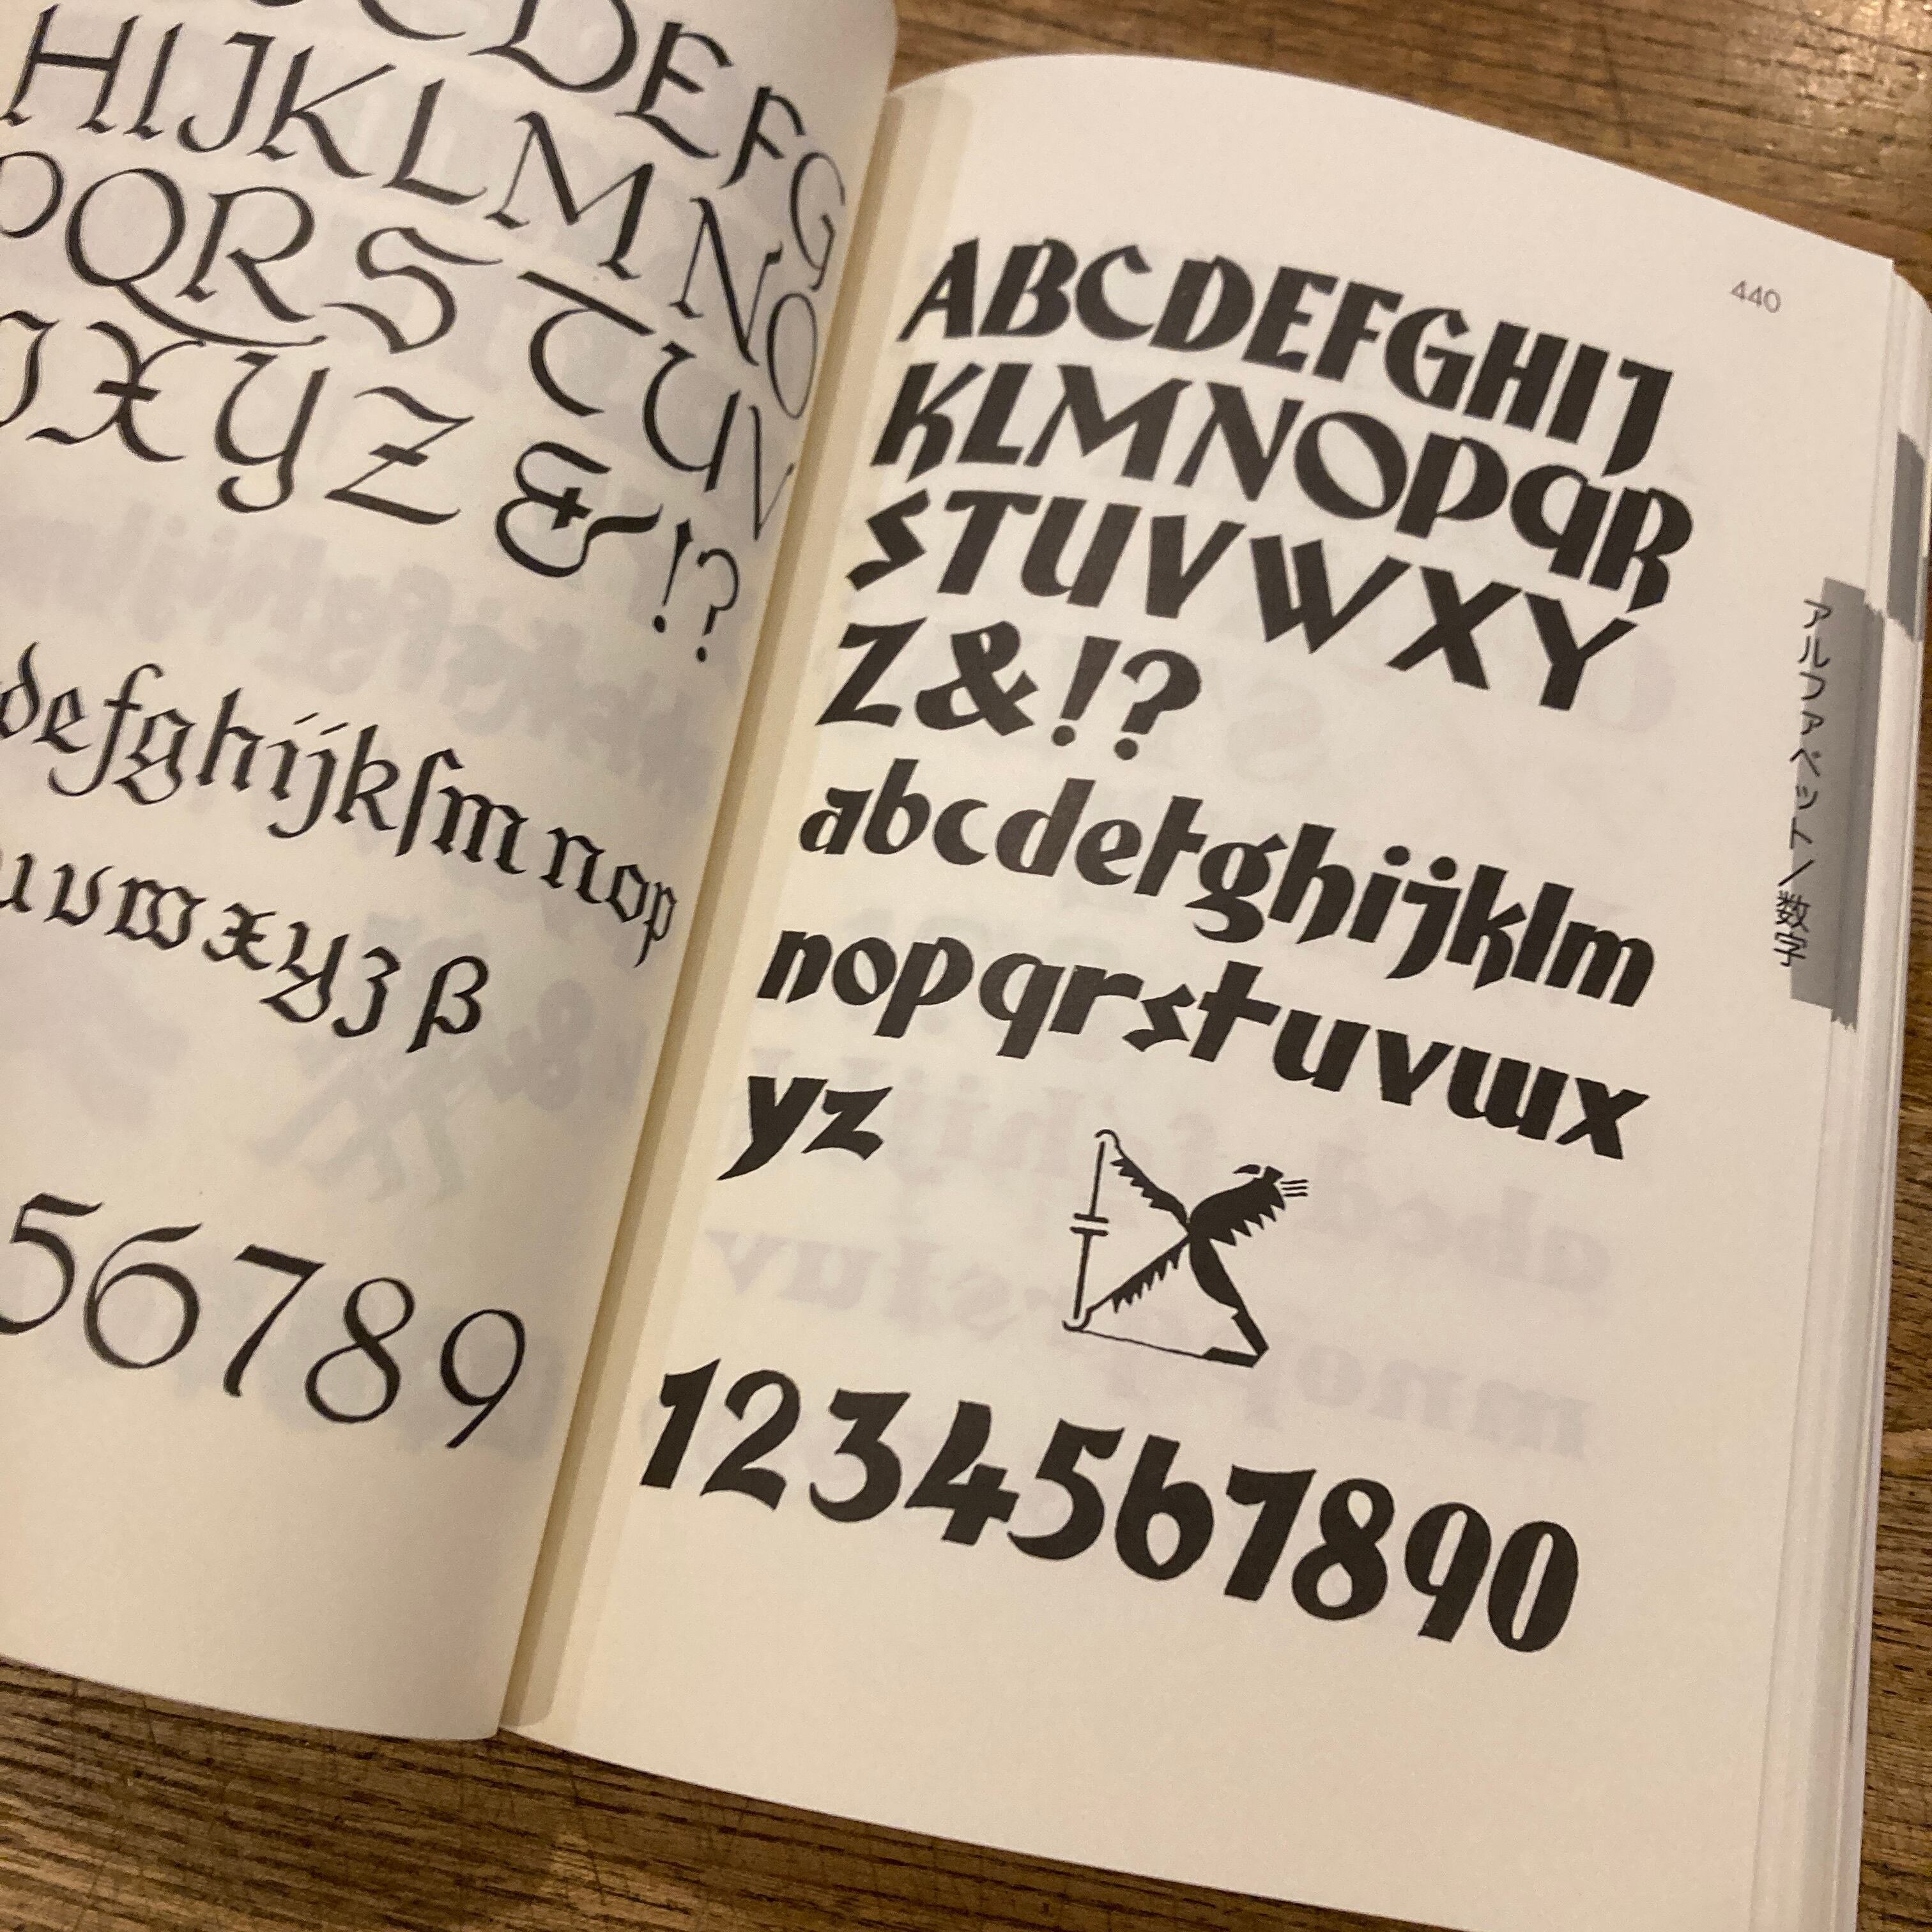 CDEFG
HIJKLMNO
PQRSTUV
XYZ&!?
defghijkſmnop
uvwxyzß
56789
440
ABCDEFGHIJ
KLMNOPqR
STUVWXY
Z&!?
abcdefghijklm
nopqrstuvwx
yz
1234567890
アルファベット/数字